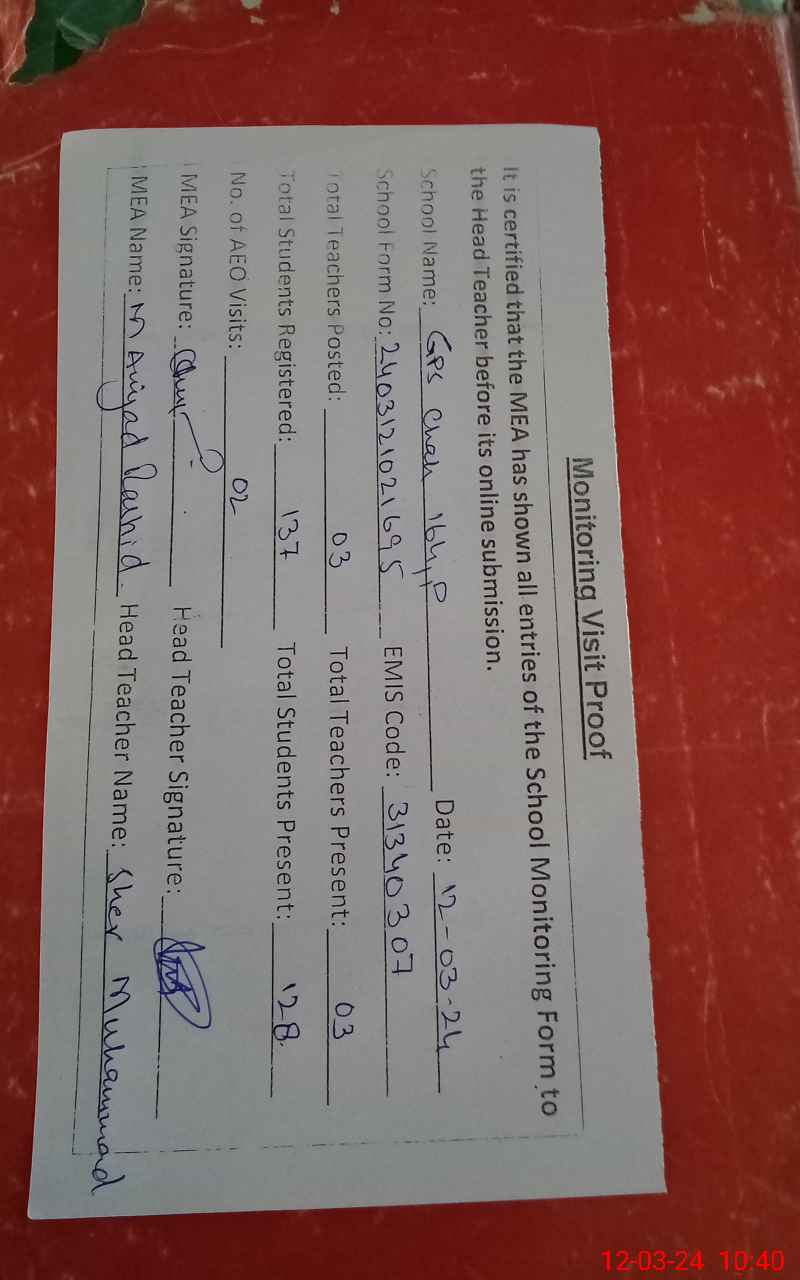 Monitoring Visit Proof
It is certified that the MEA has shown all entries of the School Monitoring Form to
the Head Teacher before its online submission.
School Name: GPS Chak 164,P Date: 12-03-24
School Form No: 2403121021695 EMIS Code: 31340307
Total Teachers Posted: 03 Total Teachers Present: 03
Total Students Registered: 137 Total Students Present: 128
No. of AEO Visits: 02
MEA Signature: Head Teacher Signature:
MEA Name: M Amjad Rashid Head Teacher Name: Sher Muhammad
12-03-24 10:40